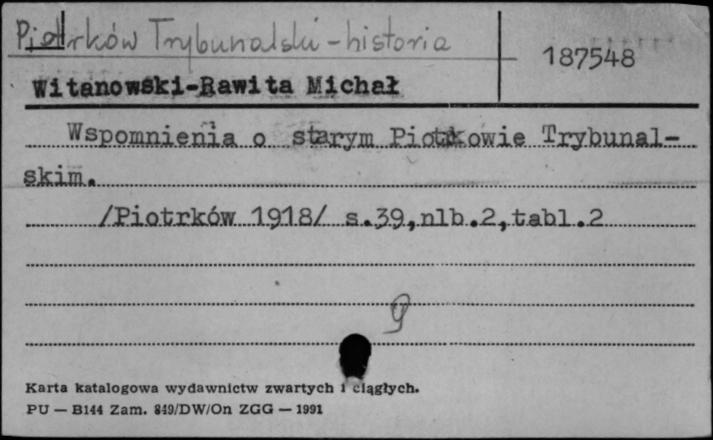 Piotrków Trybunalski - historia
187548
Witanowski-Rawita Michał
Wspomnienia o starym Piotrkowie Trybunal-
skim.
/Piotrków 1918/ s.39,nlb.2,tabl.2
g
Karta katalogowa wydawnictw zwartych i ciągłych.
PU — B144 Zam. 849/DW/On ZGG — 1991